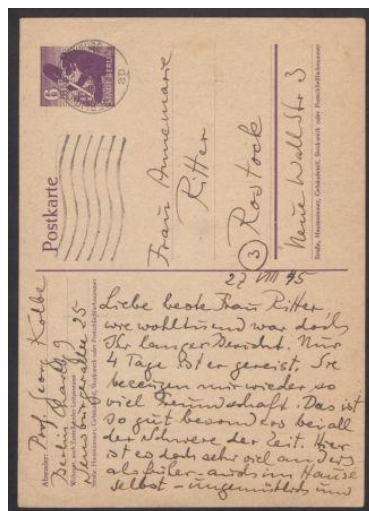 6
STADT BERLIN
ap
Postkarte
Frau Annemarie
Ritter
3 Rostock
Neue Wallstr 3
Straße, Hausnummer, Gebäudeteil, Stockwerk oder Postschließfachnummer
Absender: Prof. Georg Kolbe
Berlin Charlbg 9
Wohnort, auch Zustell- oder Leitpostamt
Sensburgerallee 25
Straße, Hausnummer, Gebäudeteil, Stockwerk oder Postschließfachnummer
27 VIII 45
Liebe beste Frau Ritter
wie wohltuend war doch
Ihr langer Bericht. Nur
4 Tage ist er gereist. Sie
bezeugen mir wieder so
viel Freundschaft. Das ist
so gut besonders bei all
der Schwere der Zeit. Hier
ist es doch sehr viel anders
als früher - auch im Hause
selbst - ungemütlich und